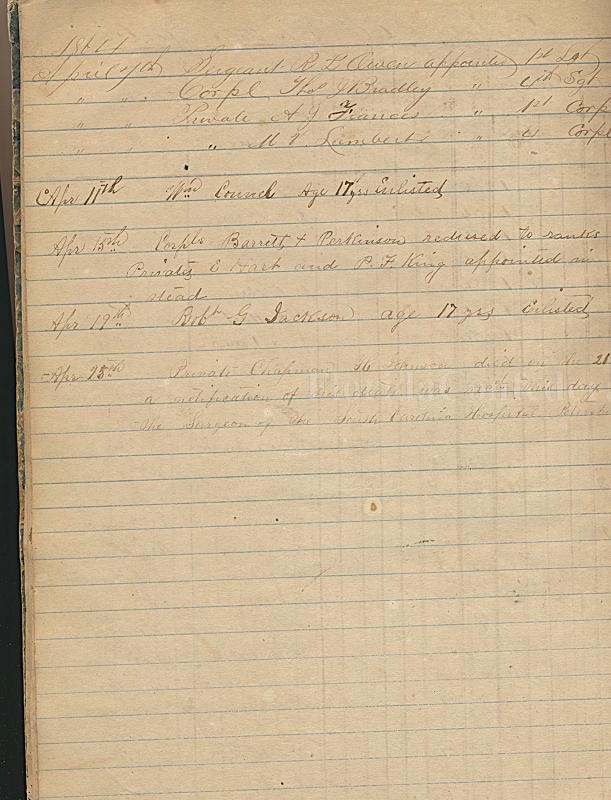 1864
April 7th Sergeant R L Owen appointed 1st Sgt
" " Corpl Thos J Bradley " 4th Sgt
" " Private A J Frances " 1st Corp
" " " M V Lambert " 4 Corpl
Apr 11th Wm Council Age 17 yrs Enlisted
Apr 15th Corpls Barrett & Perkinson reduced to ranks
Privates E Hart and P. F. King appointed in
stead
Apr 19th Robt G Jackson age 17 yrs Enlisted
Apr 25th Private Chapman H Johnson died on the 21
a notification of his death was this day
the Surgeon of the South Carolina Hospital